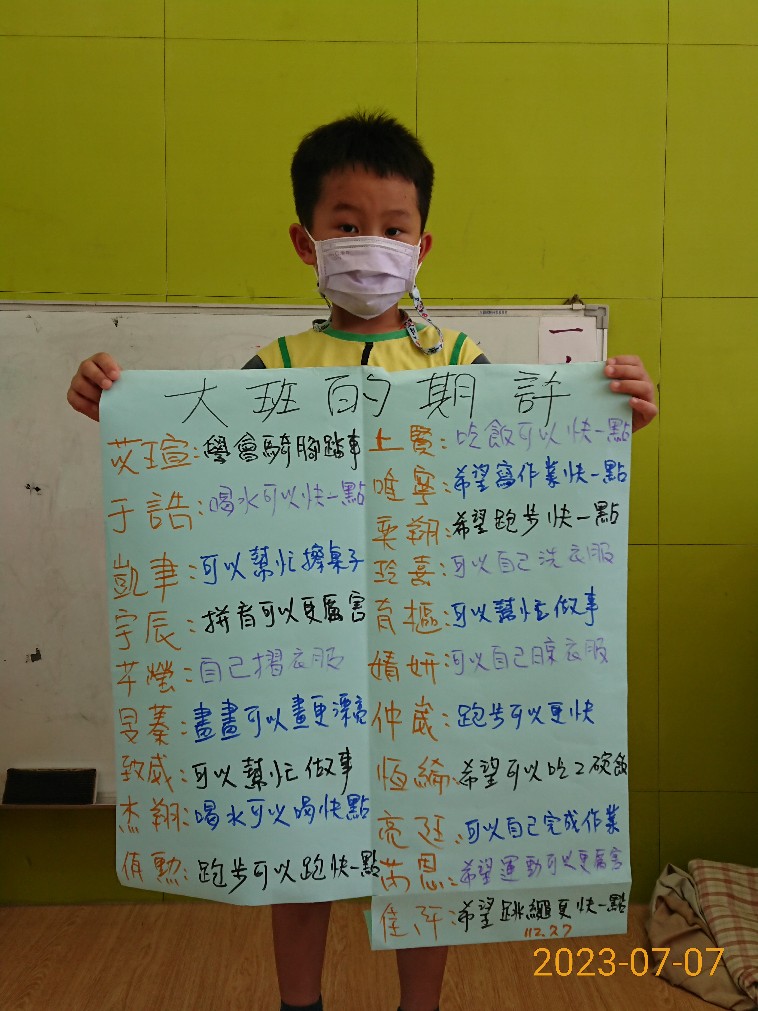 大班的期許
苡瑄：學會騎腳踏事
于誥：喝水可以快一點
凱聿：可以幫忙擦桌子
宇辰：拼音可以更厲害
芊瑩：自己摺衣服
旻蓁：畫畫可以畫更漂亮
致威：可以幫忙做事
杰翔：喝水可以喝快點
偵勲：跑步可以跑快一點
上賢：吃飯可以快一點
唯寧：希望寫作業快一點
奕翔：希望跑步快一點
玲熹：可以自己洗衣服
育樞：可以幫忙做事
婧妍：可以自己晾衣服
仲崴：跑步可以更快
恆綸：希望可以吃2碗飯
亮廷：可以自己完成作業
芮恩：希望運動可以更厲害
佳阡：希望跳繩更快一點
112.7.7
一
2023-07-07